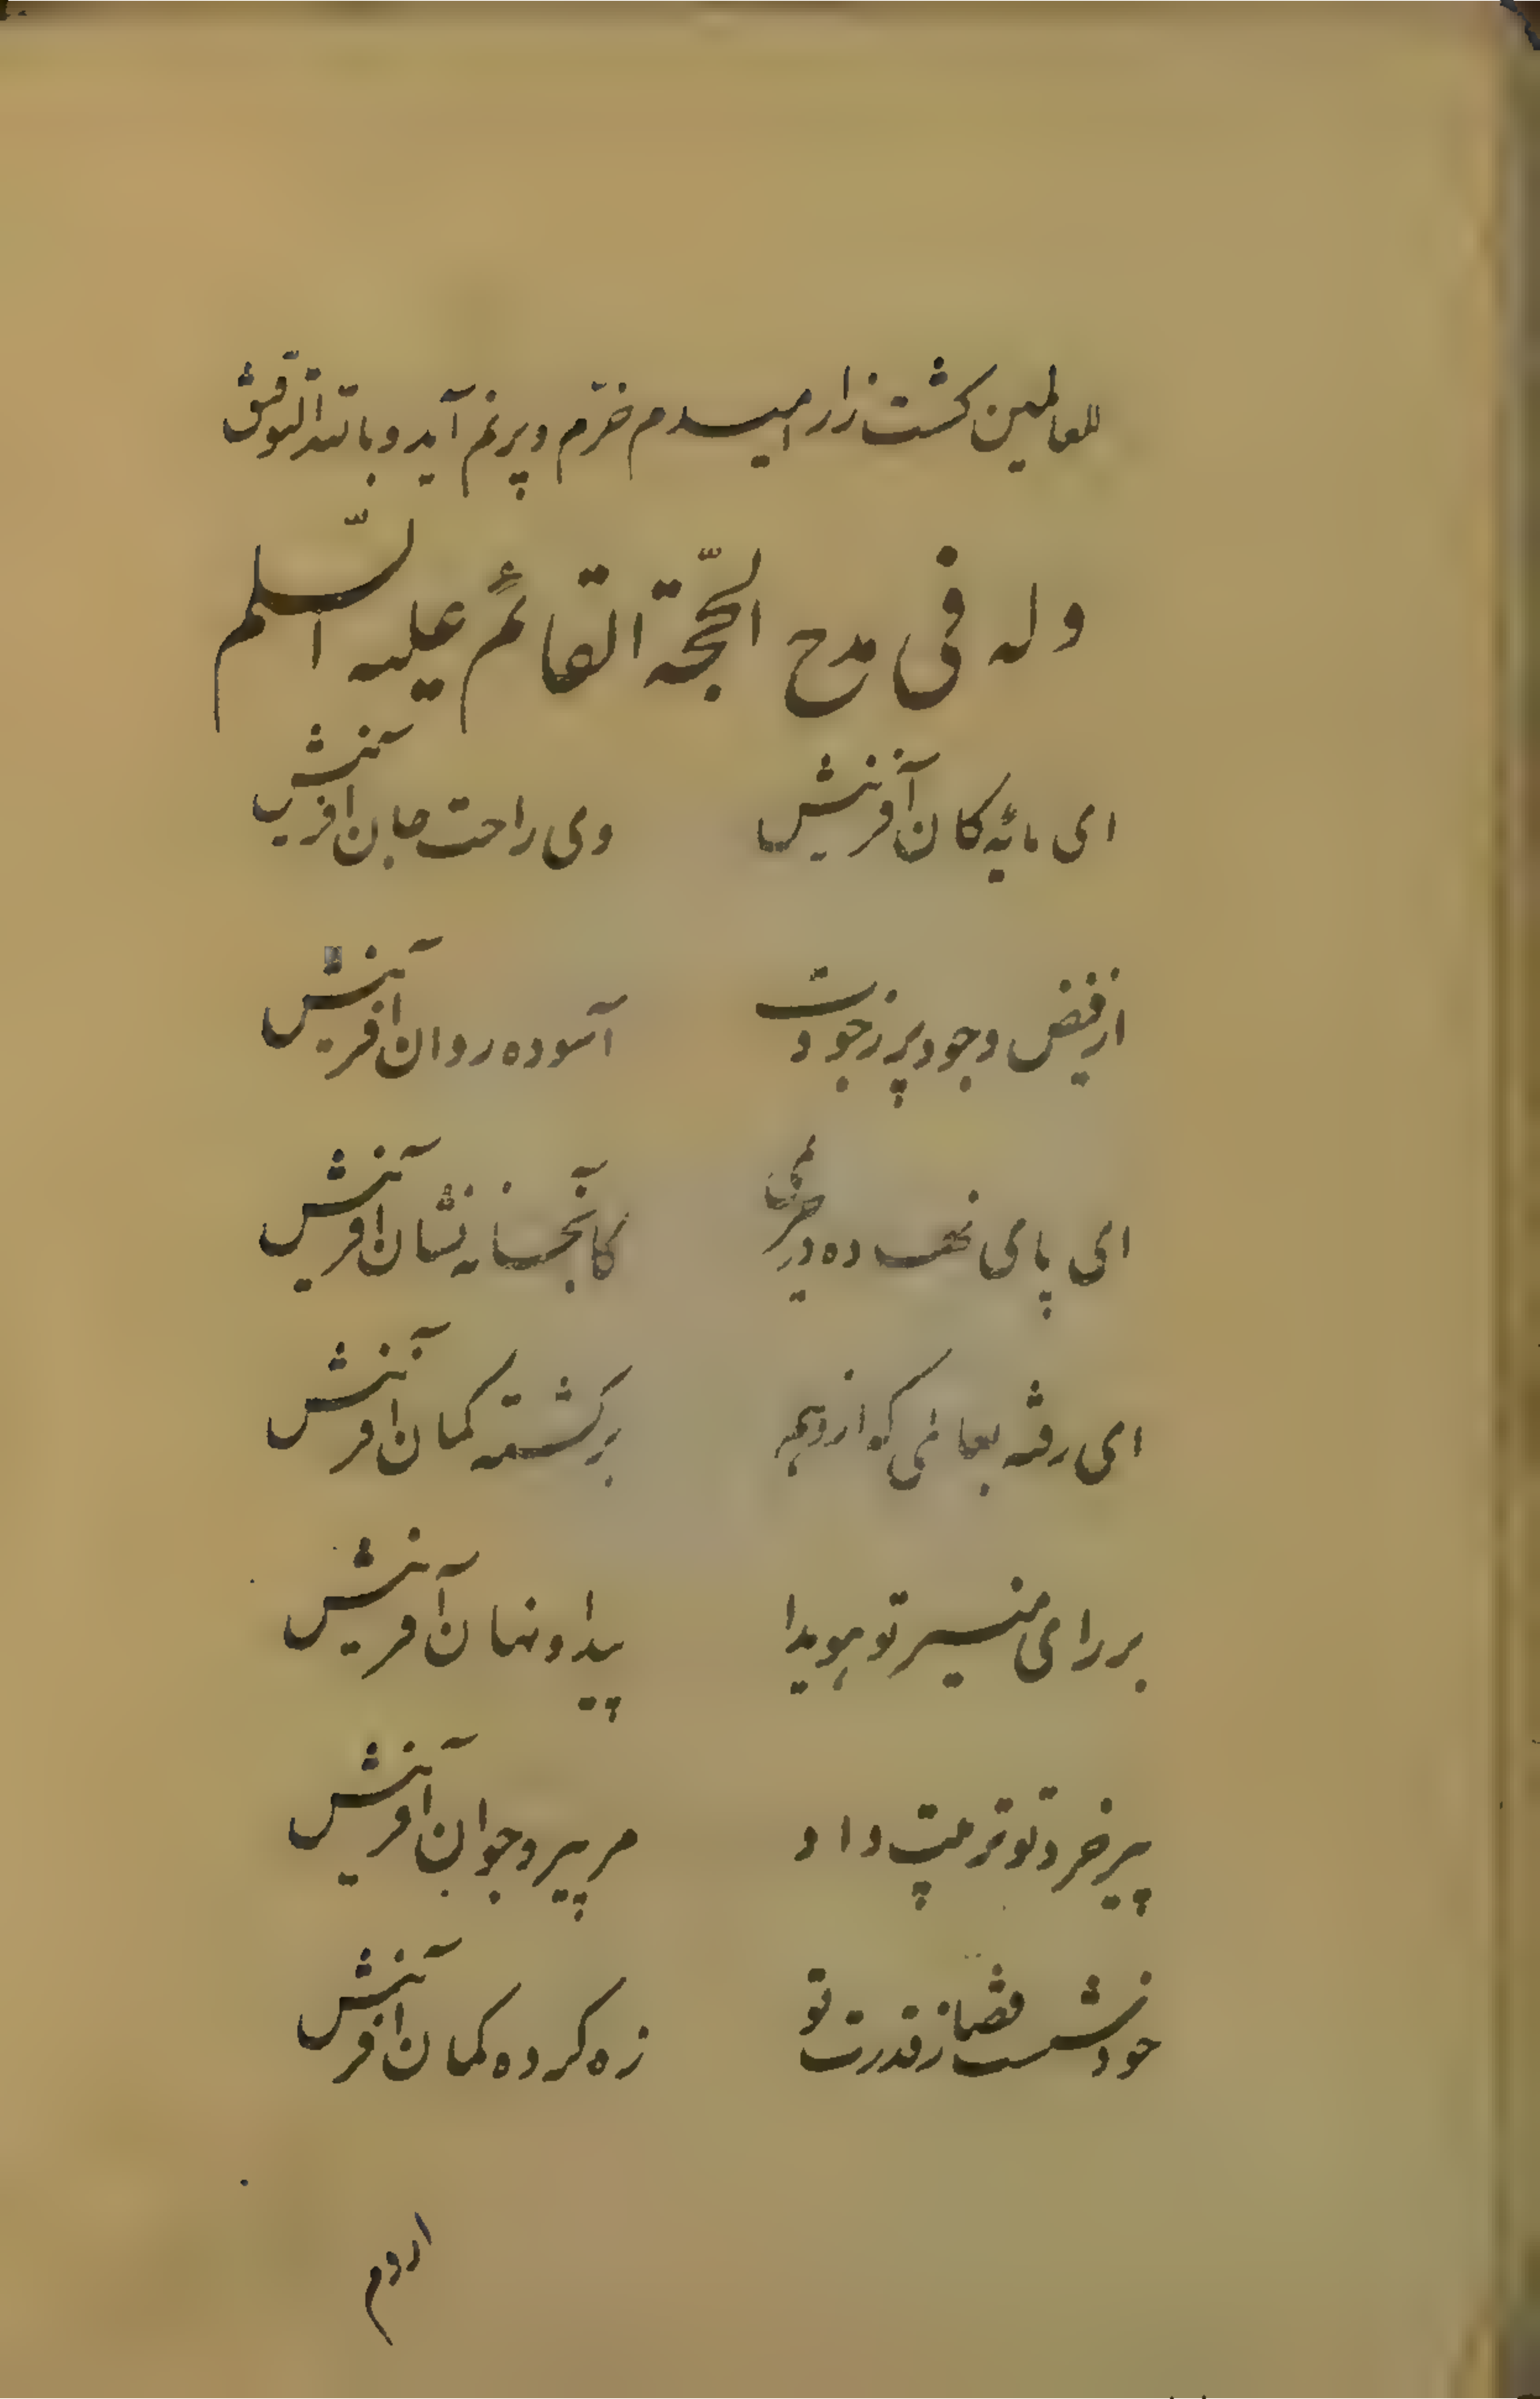 للعالمین کشت زار امیدم خرّم و پر نم آید و بالله التوفیق
وله فی مدح الحجّة القائم علیه السّلم
ای مایهٔ کان آفرینش وی راحت جان آفرینش
از فیض وجود پر ز جودت آسوده روان آفرینش
ای پای نهاده در کانجا نه نشان آفرینش
ای رفته بعالمی که از وهم برگشته گمان آفرینش
بر رای منیر تو هویدا پیدا و نهان آفرینش
پیر خرد تو تربیت داد مر پیر و جوان آفرینش
خود شست قضا ز قدرت تو زه کرده کمان آفرینش